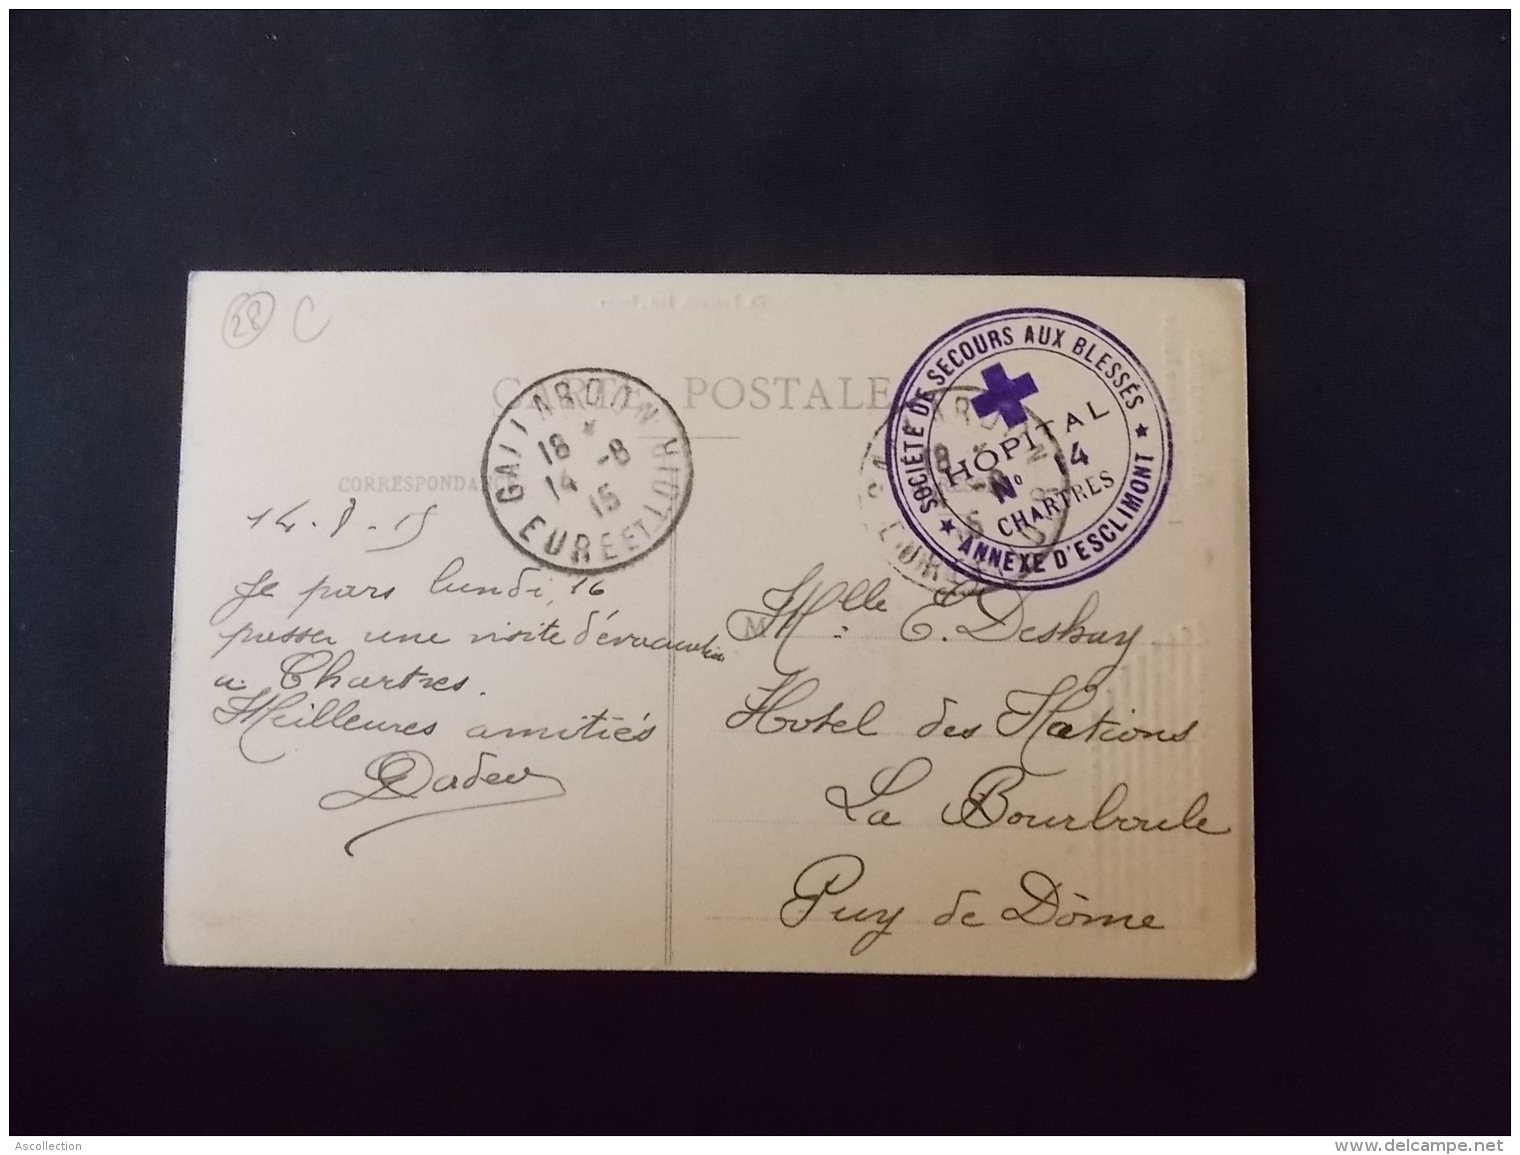 28 C
CARTE POSTALE
GALLARDON
18 * -8
14 15
EURE ET LOIR
SOCIÉTÉ DE SECOURS AUX BLESSÉS
HOPITAL
No 14
CHARTRES
★ ANNEXE D'ESCLIMONT ★
CORRESPONDANCE
14-8-15
Je pars lundi, 16
passer une visite d'évacuation
à Chartres.
Meilleures amitiés
M
Mlle E. Deshay
Hotel des Nations
La Bourboule
Puy de Dôme
Ascollection
www.delcampe.net